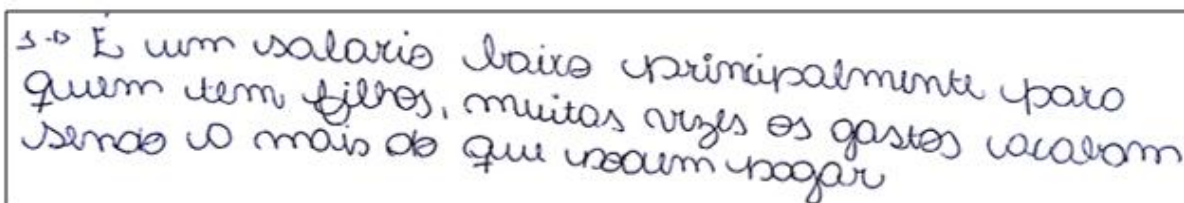 1-D É um salario baixo principalmente para
quem tem filhos, muitas vezes os gastos acabam
sendo o mais do que podem pagar